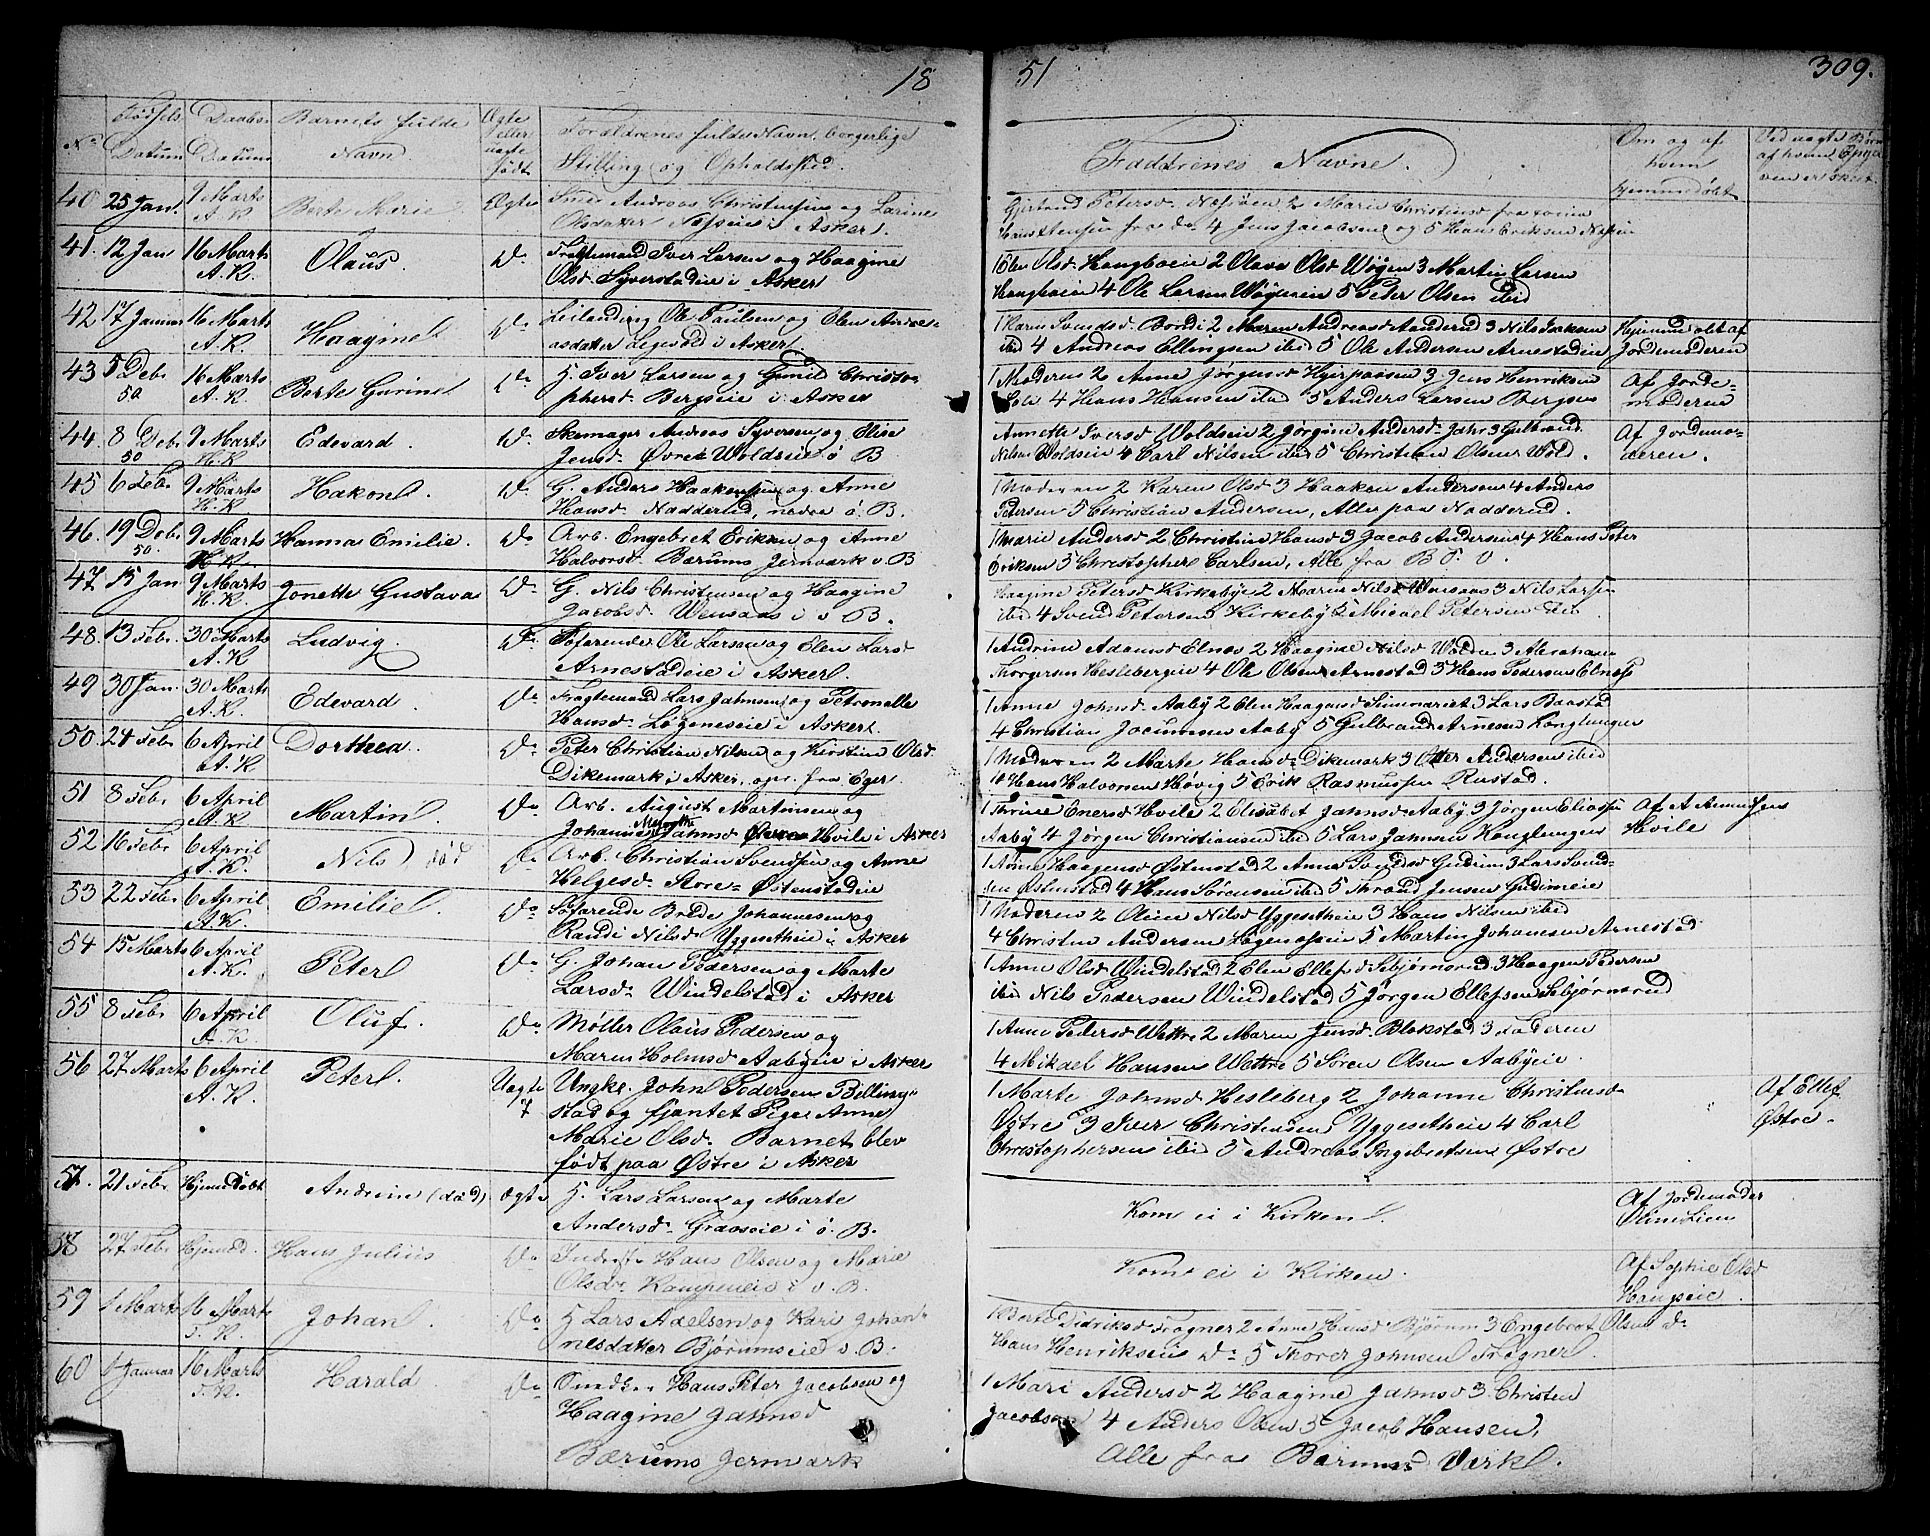 18
51
309.
No
Fødsels Datum
Daabs Datum
Barnets fulde Navn
Ægte eller uægte født
Forældrenes fulde Navn, borgerlige
Stilling og Opholdssted
Faddernes Navne.
Om og af hvem hjemmedøbt
40 25 Jan. 9 Marts A. K. Berte Marie Ægte Andreas Christensen og Larine
Olsdatter Næsøeie i Asker.
41. 12 Jan 16 Marts A. K. Olaus. Do Fragtemand Iver Larsen og Haagine
Olsd. Syverstadeie i Asker
1 Elen Olsd. 2 Olava Olsd Wøyen 3 Martin Larsen
4 Ole Larsen Wøyeneie 5 Peter Olsen ibid
42 17 Januar 16 Marts A. K. Haagine Do Leilænding Ole Paulsen og Elen Andre-
asdatter i Asker.
1 Karen Svendsd. Bondi 2 Maren Andreasd 3 Nils Isaksen
ibid 4 Andreas Ellingsen ibid 5 Ole Andersen Arnestadeie
Hjemmedøbt af
Jordemoderen
43 5 Debr 50 16 Marts A. K. Berte Gurine Do H. Iver Larsen og Gunil Christo-
phersd. Bergseie i Asker
1 Moderen 2 Anne Jørgensd 3 Jens Henriksen
4 Hans Hansen ibid 5 Anders Larsen Bergseie
Af Jorde-
moderen
44. 8 Debr 50 9 Marts H. K Edevard. Do Skomager Andreas Syversen og Elise
Jensd. Øvre Woldseie ø B
Annette Iversd Woldseie 2 Jørgine Andersd. Jahr 3 Gulbrand
Nilsen Woldseie 4 Carl Nilsen ibid 5 Christian Olsen Wold.
Af Jordemo-
deren.
45 6 Febr. 9 Marts H. K. Hakon. Do G. Anders Haakensen og Anne
Hansd. Nadderud, nedre ø. B.
1 Moderen 2 Karen Olsd 3 Haaken Andersen 4 Anders
Petersen 5 Christian Andersen, Alle paa Nadderud.
46. 19 Debr 50. 9 Marts H. K. Hanna Emilie. Do Arb. Engebret Eriksen og Anne
Halvorsd. Bærums Jernverk v B
1 Marie Andersd 2 Christine Hansd 3 Jacob Andersen 4 Hans Peter
Eriksen 5 Christopher Carlsen, Alle fra B. V.
47 15 Jan 9 Marts H. K. Jonette Gustava Do G. Nils Christensen og Haagine
Jacobsd. Wensaas i v B.
Haagine Petersd Kirkebye 2 Maren Nilsd Wensaas 3 Nils Larsen
ibid 4 Svend Petersen Kirkeby 5 Micael Petersen ibid
48. 13 Febr. 30 Marts A. K Ludvig. Do Søfarende Ole Larsen og Elen Larsd
Arnestadeie i Asker.
1 Andrine Adamsd Elnæs 2 Haagine Nilsd Wolden 3 Abraham
Thorgersen Heslebergeie 4 Ole Olsen Arnestad 5 Hans Pedersen Elnæs
49 30 Jan. 30 Marts A. K. Edevard Do Fragtemand Lars Jahnsen og Petronelle
Hansd. Løgeneseie i Asker.
1 Anne Johnsd. Aaby 2 Elen Haagensd 3 Lars Baastad
4 Christian Jocumsen Aaby 5 Gulbrand Arnesen Konglungen
50. 24 Febr 6 April A. K Dorthea. Do Peter Christian Nilsen og Kirstine Olsd.
Dikemark i Asker, opr. fra Eger.
1 Moderen 2 Marte Hansd. Dikemark 3 Otter Andersen ibid
Hans Halvorsen Høvig 5 Erik Rasmussen Rustad.
51 8 Febr 6 April A. K Martin Do Arb. August Martinsen og
Johanne Jahnsd Hvile i Asker
1 Thrine Enersd Hvile 2 Elisabet Jahnsd. Aaby 3 Jørgen Eliassen
Aaby 4 Jørgen Christiansen ibid 5 Lars Jahnsen Konglungen
Af A Asmussen
Hvile
52 16 Febr 6 April A. K. Nils død Do Arb. Christian Svendsen og Anne
Helgesd. Store-Østenstadeie
1 Anne Haagensd Østenstad 2 Anne Svendsd Gudim 3 Lars Svend-
sen Østenstad 4 Hans Sørensen ibid 5 Thrond Jensen Gudimeie
53 22 Febr 6 April A. K. Emilie Do Søfarende Brede Johannesen og
Randi Nilsd. Yggesetheie i Asker
1 Moderen 2 Oline Nilsd Yggesetheie 3 Hans Nilsen ibid
4 Christen Andersen Løgenæseie 5 Martin Johannesen Arnestad
54 15 Marts 6 April A. K. Peter Do G. Johan Pedersen og Marte
Larsd. Windelstad i Asker
1 Anne Olsd Windelstad 2 Elen Ellefsd Sebjørnsrud 3 Haagen Pedersen
ibid Nils Pedersen Windelstad 5 Jørgen Ellefsen Sebjørnsrud
55 8 Febr 6 April A. K. Oluf. Do Møller Olaus Pedersen og
Maren Holmsd Aabyeie i Asker
1 Anne Pedersd Wettre 2 Maren Jensd. Blakstad 3 Faderen
4 Mikael Hansen Wettre 5 Søren Olsen Aabyeie.
56 27 Marts 6 April A. K. Peter. Uægte 7 Ungk. John Pedersen Billing-
stad og fjantet Pige Anne
Marie Olsd. Barnet blev
født paa Østre i Asker
1 Marte Johnsd Hesleberg 2 Johanne Christensd.
Østre 3 Iver Christensen Yggesetheie 4 Carl
Christophersen ibid 5 Andreas Ingebretsen Østre
Af Ellef
Østre.
57. 21 Febr Hjemmedøbt Andrine (død) Ægte H. Lars Larsen og Marte
Andersd. Gravseie i ø. B.
Kom ei i Kirken.
Af Jordemoder
Oline Lien
58 27 Febr Hjemmed. Hans Julius Do Inderst Hans Olsen og Marie
Olsd. Kampeneie i v. B.
Kom ei i Kirken.
Af Sophie Olsd
Haugseie.
59 1 Marts 16 Marts T. K. Johan. Do H Lars Axelsen og Kari Johan-
nesdatter Bjørumseie v. B.
1 Berte Didriksd Frogner 2 Anne Hansd Bjørum 3 Engebret Olsen do
Hans Henriksen Do 5 Thorer Johnsen Frogner.
60 1 Januar 16 Marts T. K. Harald Do Hans Peter Jacobsen og
Haagine Jahnsd
Bærums Jernværk
1 Mari Andersd 2 Haagine Jahnsd 3 Christen
Jacobsen 4 Anders Olsen 5 Jacob Hansen,
Alle fra Bærums Værk.